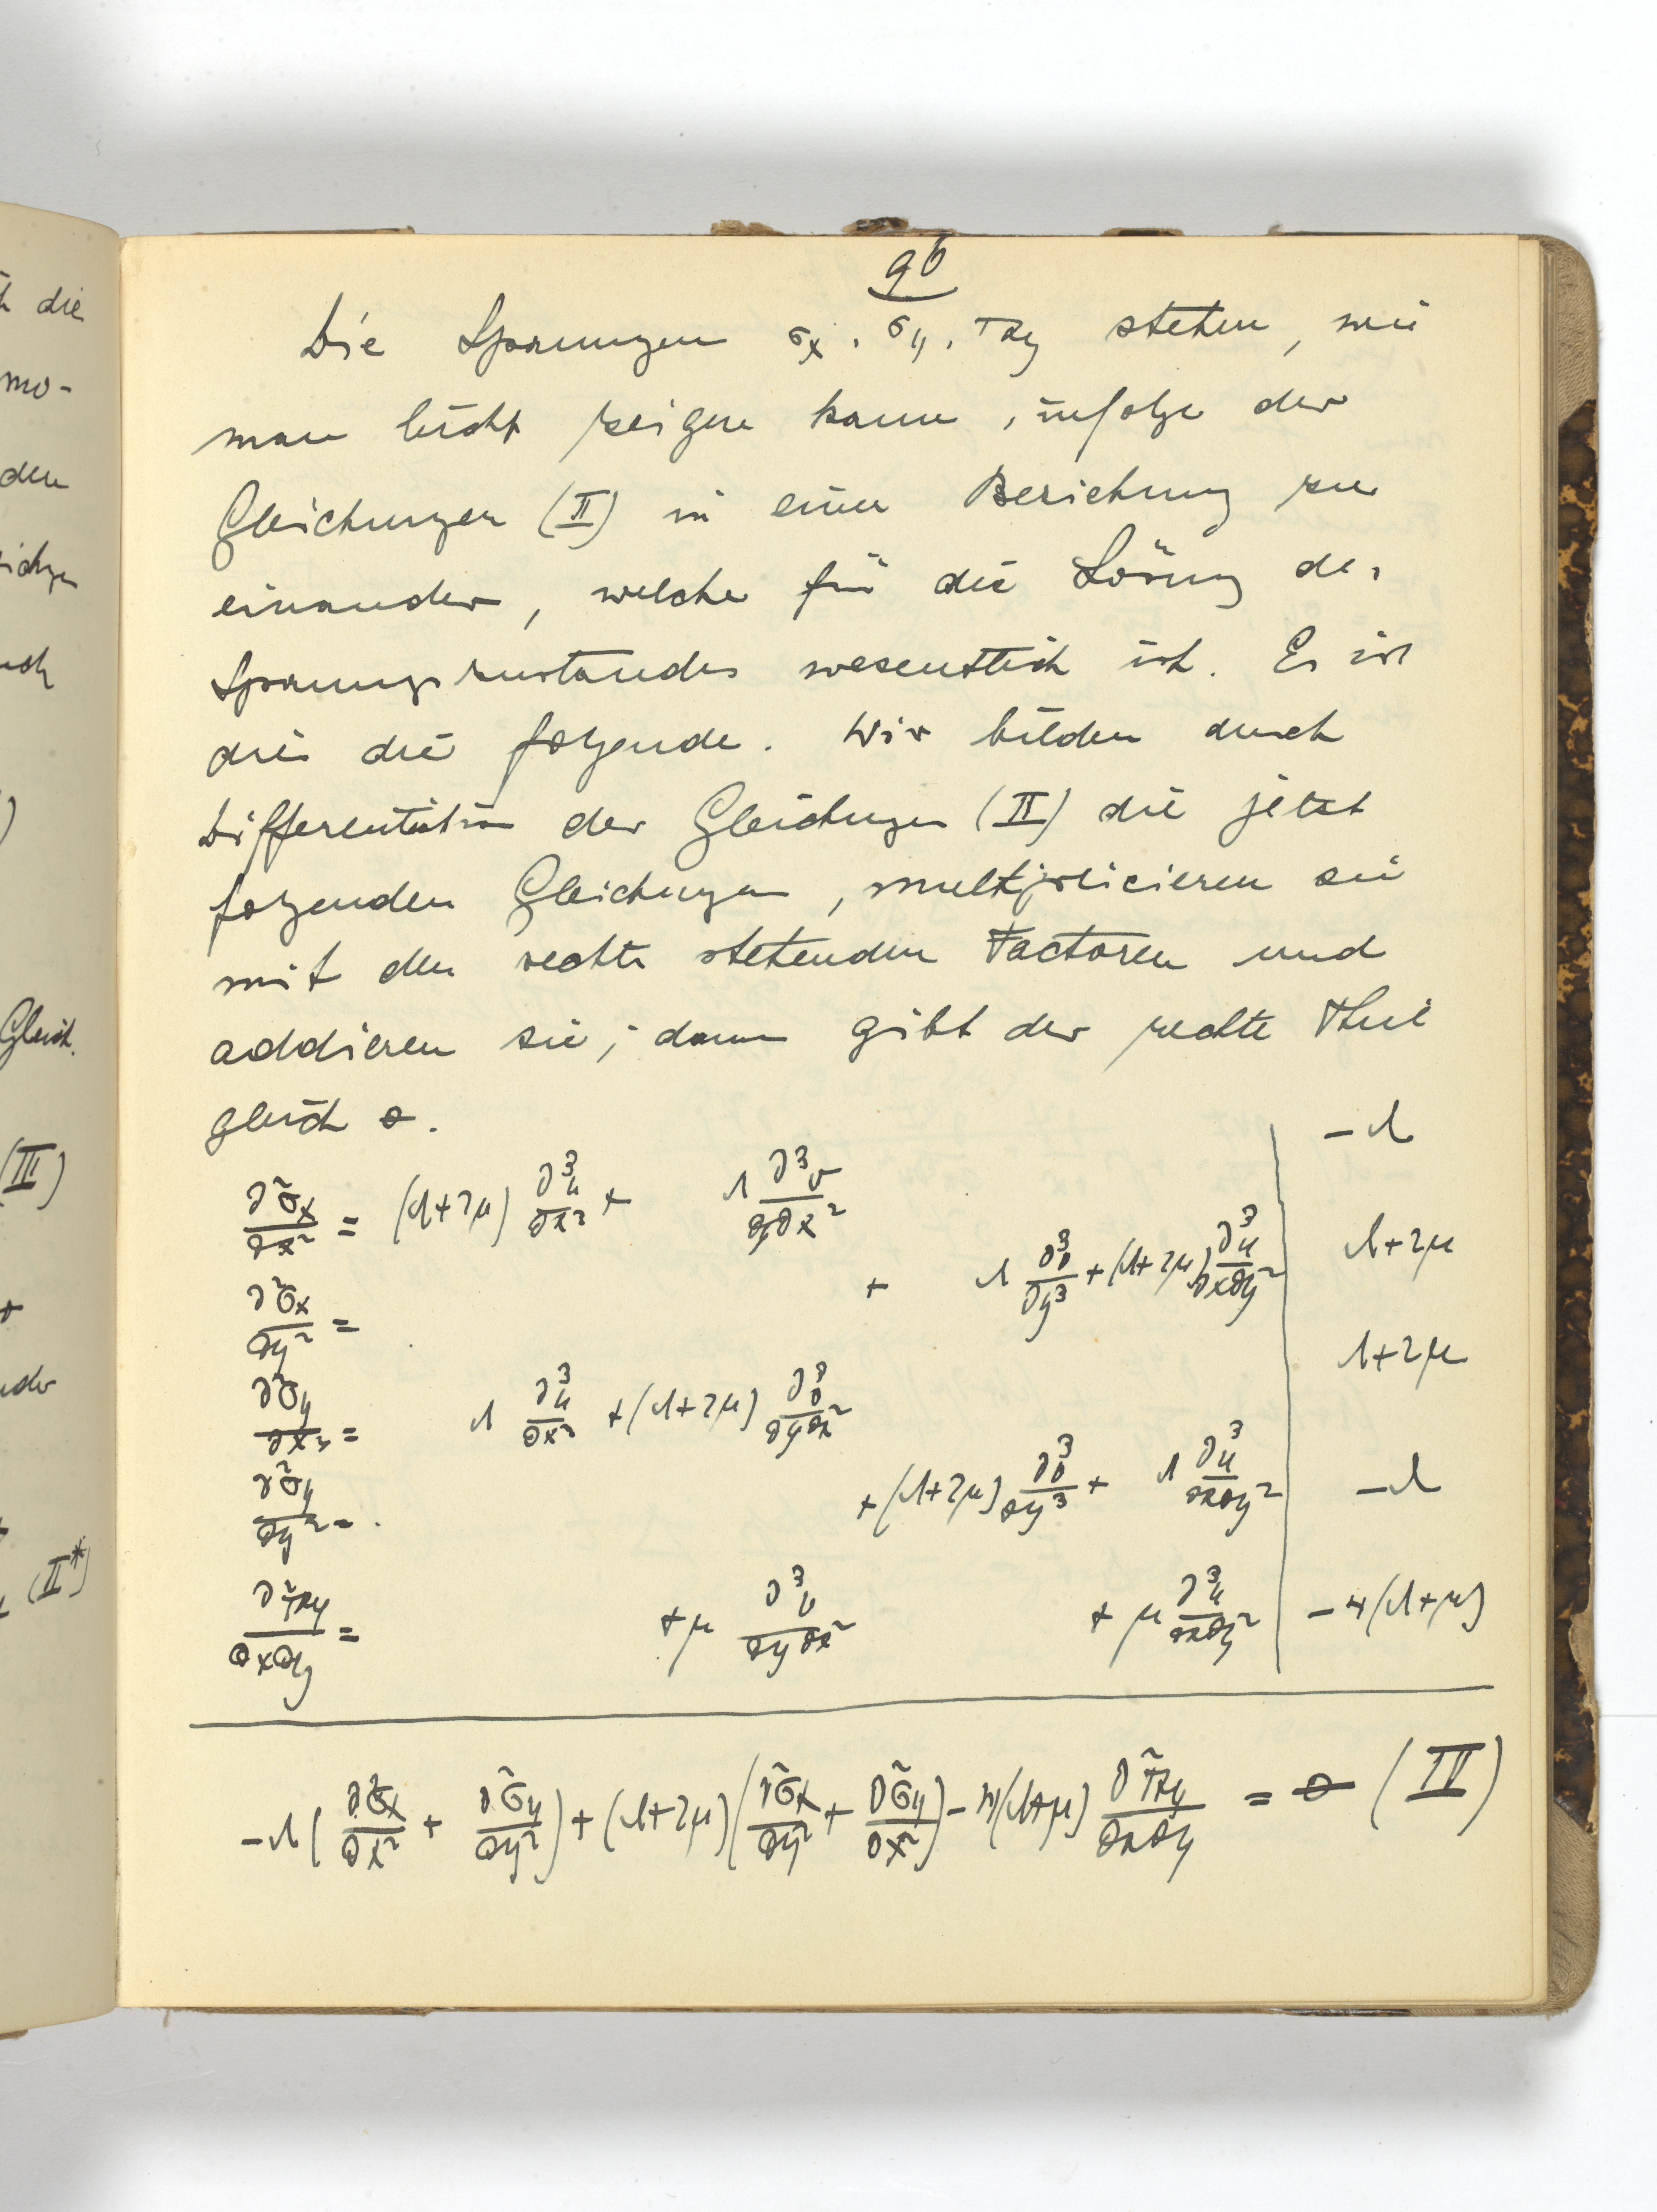 96
Die Spannungen σx, σy, τxy stehen, wie
man leicht zeigen kann, infolge der
Gleichungen (II) in einer Beziehung zu
einander, welche für die Lösung des
Spannungszustandes wesentlich ist. Es ist
dies die folgende. Wir bilden durch
Differentiation der Gleichungen (II) die jetzt
folgenden Gleichungen, multiplicieren sie
mit den rechts stehenden Factoren und
addieren sie; dann gibt der rechte Theil
gleich 0.
∂²σx/∂x² = (λ+2μ) ∂³u/∂x³ + λ ∂³v/∂y∂x² | -λ
∂²σx/∂y² = + λ ∂³v/∂y³ + (λ+2μ) ∂³u/∂x∂y² | λ+2μ
∂²σy/∂x² = λ ∂³u/∂x³ + (λ+2μ) ∂³v/∂y∂x² | λ+2μ
∂²σy/∂y² = + (λ+2μ) ∂³v/∂y³ + λ ∂³u/∂x∂y² | -λ
∂²τxy/∂x∂y = + μ ∂³v/∂y∂x² + μ ∂³u/∂x∂y² | -4(λ+μ)
-λ(∂²σx/∂x² + ∂²σy/∂y²) + (λ+2μ)(∂²σx/∂y² + ∂²σy/∂x²) - 4(λ+μ) ∂²τxy/∂x∂y = 0 (IV)
die
mo-
den
Gleich.
(III)
(II*)